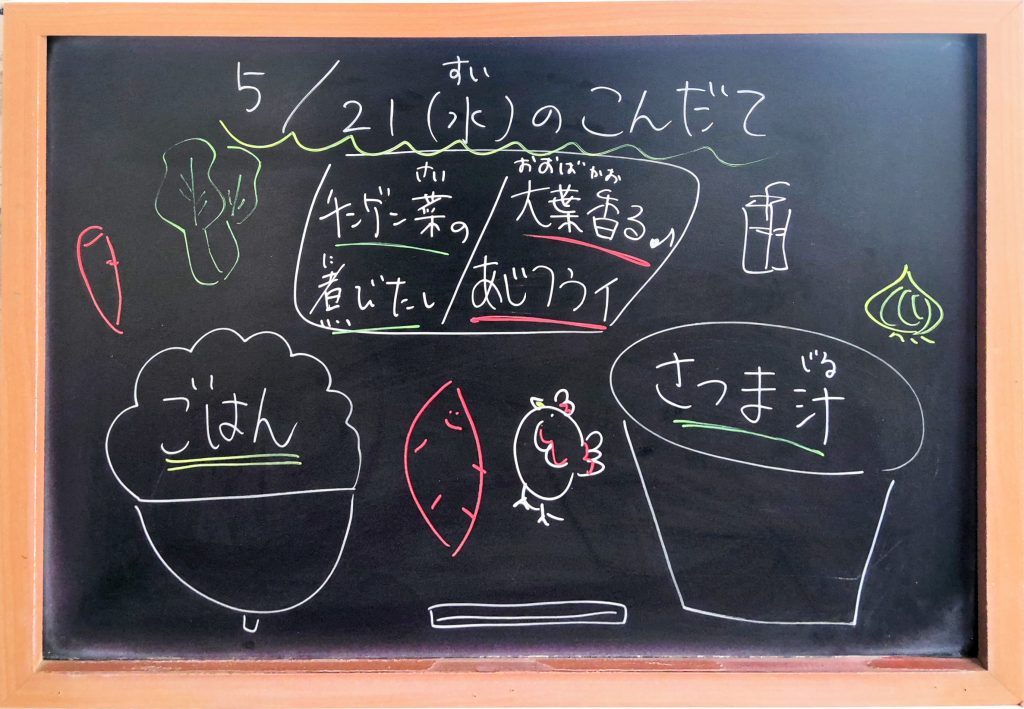 5/21(水)のこんだて
すい
チンゲン菜の
さい
煮びたし
に
大葉香る♪
おおば かお
あじフライ
ごはん
さつま汁
じる